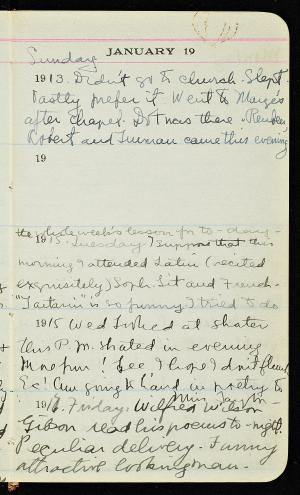 JANUARY 19
Sunday
1913. Didn't go to church. Slept.
Vastly prefer it. Went to Marge's
after Chapel. Dot was there. Reuben,
Robert and Truman came this evening
19
the whole week's lesson for to-day-
1915. Tuesday. I suppose that this
morning I attended Latin (recited
exquisitely) Soph. Lit and French.
is so funny. I tried to do
1915 Wed. I shed at skater
this P.M. skated in evening
More fun! Gee, I hope I don't flunk
Ec! Am going to hand in poetry to
Miss
1916. Friday. Wilfred Wilson
Gibson read his poems to-night.
Peculiar delivery. Funny
attractive looking man.